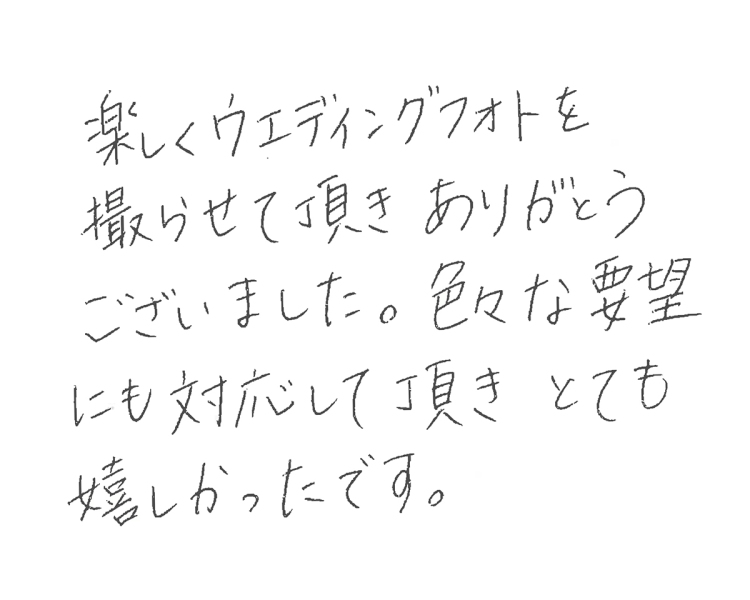 楽しくウエディングフォトを
撮らせて頂き ありがとう
ございました。色々な要望
にも対応して頂き とても
嬉しかったです。